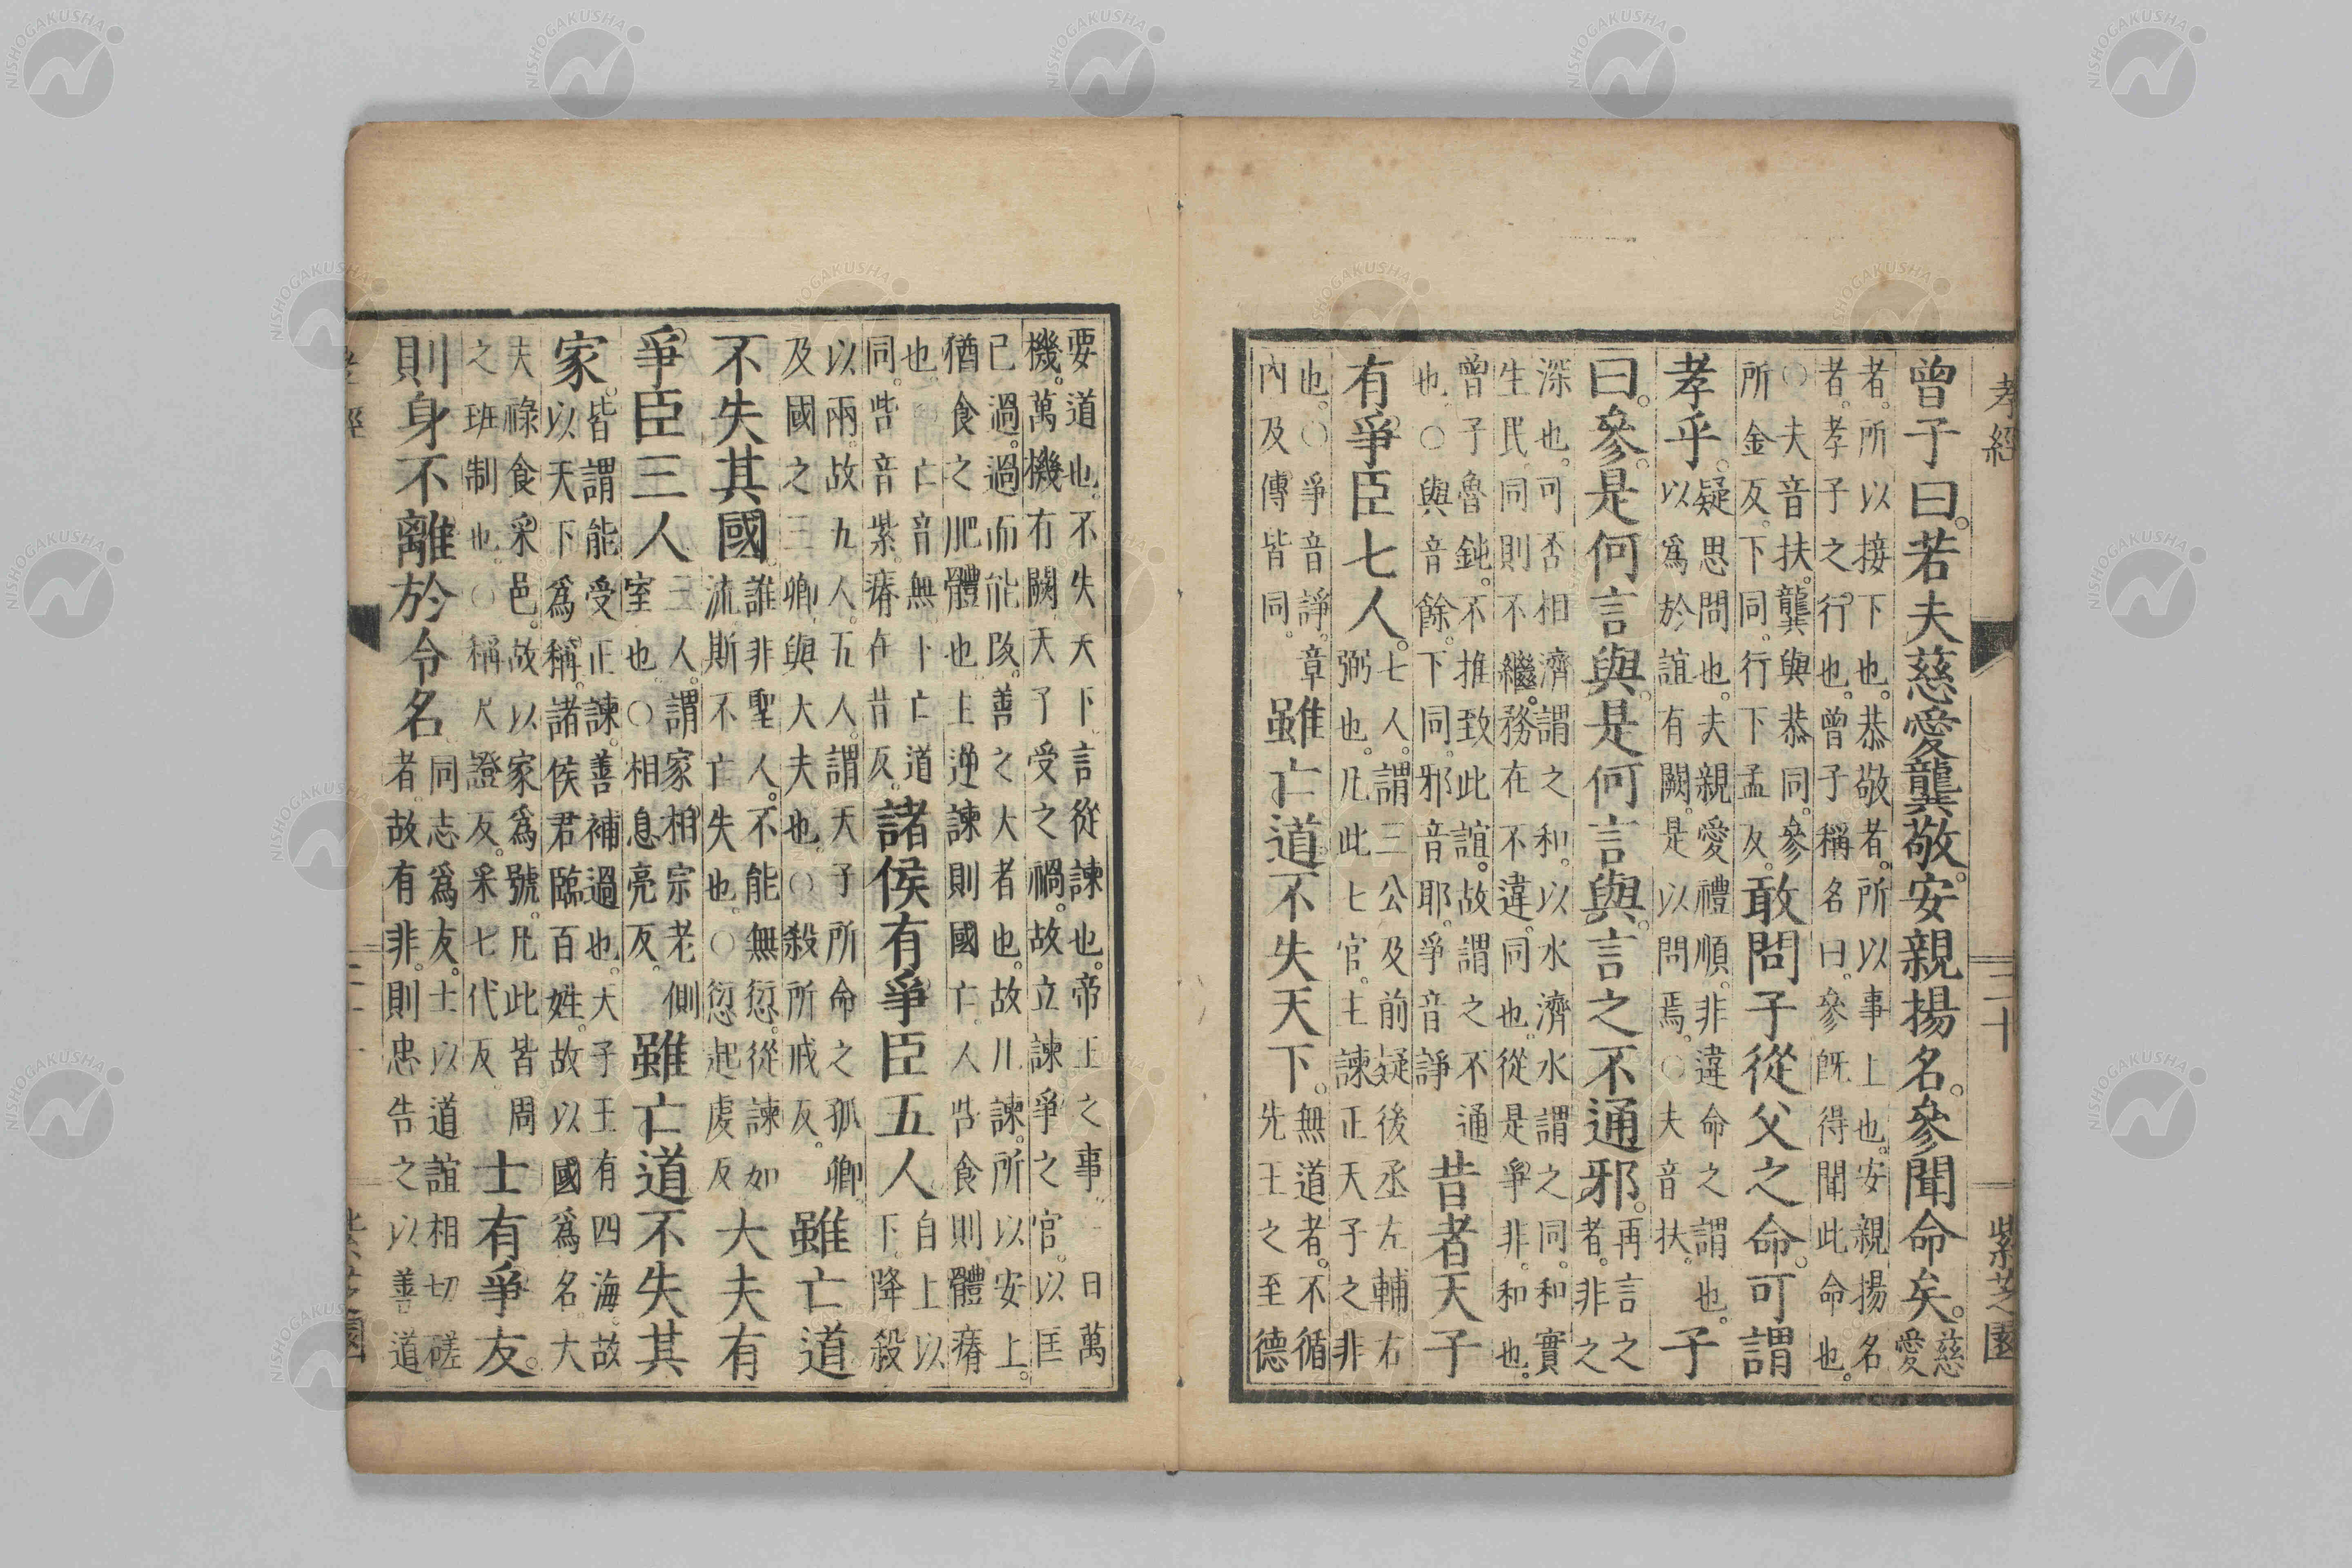 孝經 二十 紫芝園
曾子曰。若夫慈愛龔敬。安親揚名。參聞命矣。慈
愛
者。所以接下也。恭敬者。所以事上也。安親揚名
者。孝子之行也。曾子稱名曰。參旣得聞此命也。
○夫音扶。龔與恭同。參
所金反。下同。行下孟反。
敢問子從父之命。可謂
孝乎。
疑思問也。夫親愛禮順。非違命之謂也。
以爲於誼有闕。是以問焉。○夫音扶。
子
曰。參。是何言與。是何言與。言之不通邪。
再言之
者。非之
深也。可否相濟謂之和。以水濟水謂之同。和實
生民。同則不繼。務在不違。同也。從是爭非。和也。
曾子魯鈍。不推致此誼。故謂之不通
也。○與音餘。下同。邪音耶。爭音諍
昔者天子
有爭臣七人。
七人。謂三公及前疑後丞左輔右
弼也。凡此七官。主諫正天子之非
也。○爭音諍。章
內及傳皆同。
雖亡道不失天下。
無道者。不循
先王之至德
要道也。不失天下言從諫也。帝王之事一日萬
機。萬機有闕。天子受之禍。故立諫爭之官。以匡
已過。過而能改。善之大者也。故凡諫。所以安上。
猶食之肥體也。主逆諫則國亡。人呰食則體瘠
也。○亡音無。下亡道
同。呰音紫。瘠在昔反。
諸侯有爭臣五人
自上以
下。降殺
以兩。故九人。五人。謂天子所命之孤卿
及國之三卿與大夫也。○殺所戒反。
雖亡道
不失其國
誰非聖人。不能無愆。從諫如
流。斯不亡失也。○愆起虔反
大夫有
爭臣三人
三人。謂家相宗老側
室也。○相息亮反。
雖亡道不失其
家。
皆謂能受正諫。善補過也。天子王有四海。故
以天下爲稱。諸侯君臨百姓。故以國爲名。大
夫祿食采邑。故以家爲號。凡此皆周
之班制也。○稱尺證反。采七代反
士有爭友。
則身不離於令名
同志爲友。士以道誼相切磋
者。故有非。則忠告之以善道